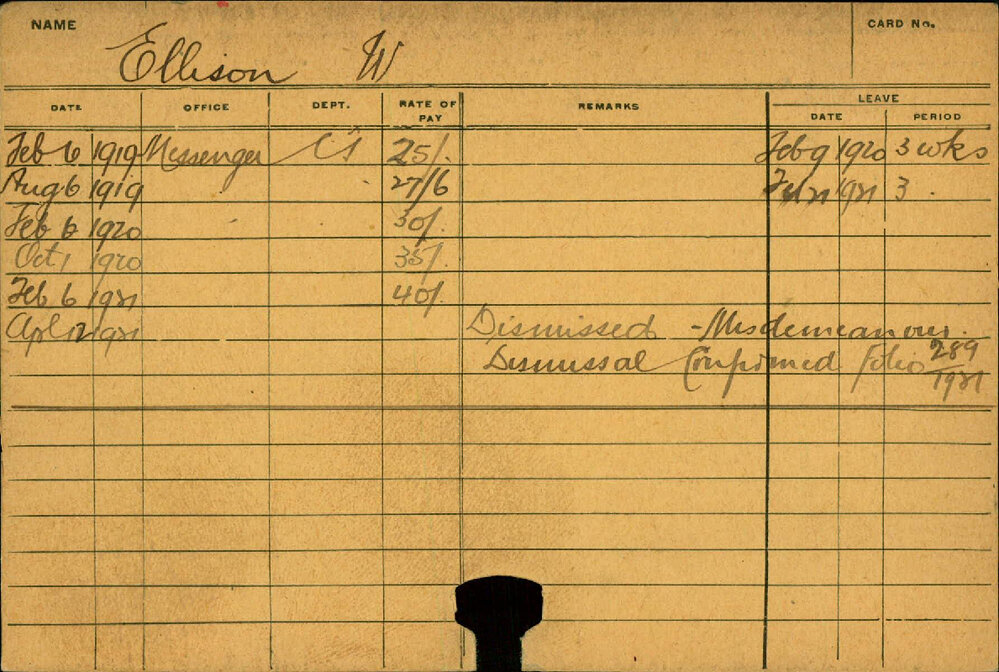 NAME Ellison W CARD No.
DATE OFFICE DEPT. RATE OF PAY REMARKS LEAVE DATE PERIOD
Feb 6 1919 Messenger 25/. Feb 9 1920 3 wks
Aug 6 1919 27/6 1921 3
Feb 6 1920 30/.
Oct 1 1920 35/.
Feb 6 1921 40/.
Apl 12 1921 Dismissed - Misdemeanour.
Dismissal Confirmed folio 289/1921